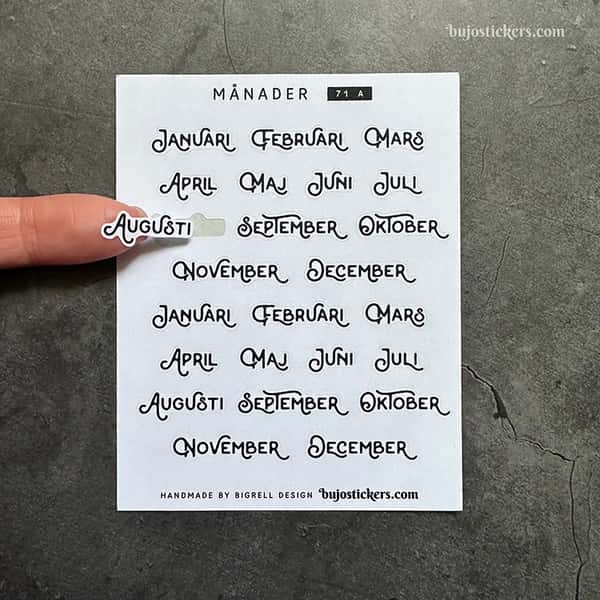 bujostickers.com
MÅNADER 71 A
JANUARI FEBRUARI MARS
APRIL MAJ JUNI JULI
AUGUSTI SEPTEMBER OKTOBER
NOVEMBER DECEMBER
JANUARI FEBRUARI MARS
APRIL MAJ JUNI JULI
AUGUSTI SEPTEMBER OKTOBER
NOVEMBER DECEMBER
HANDMADE BY BIGRELL DESIGN bujostickers.com